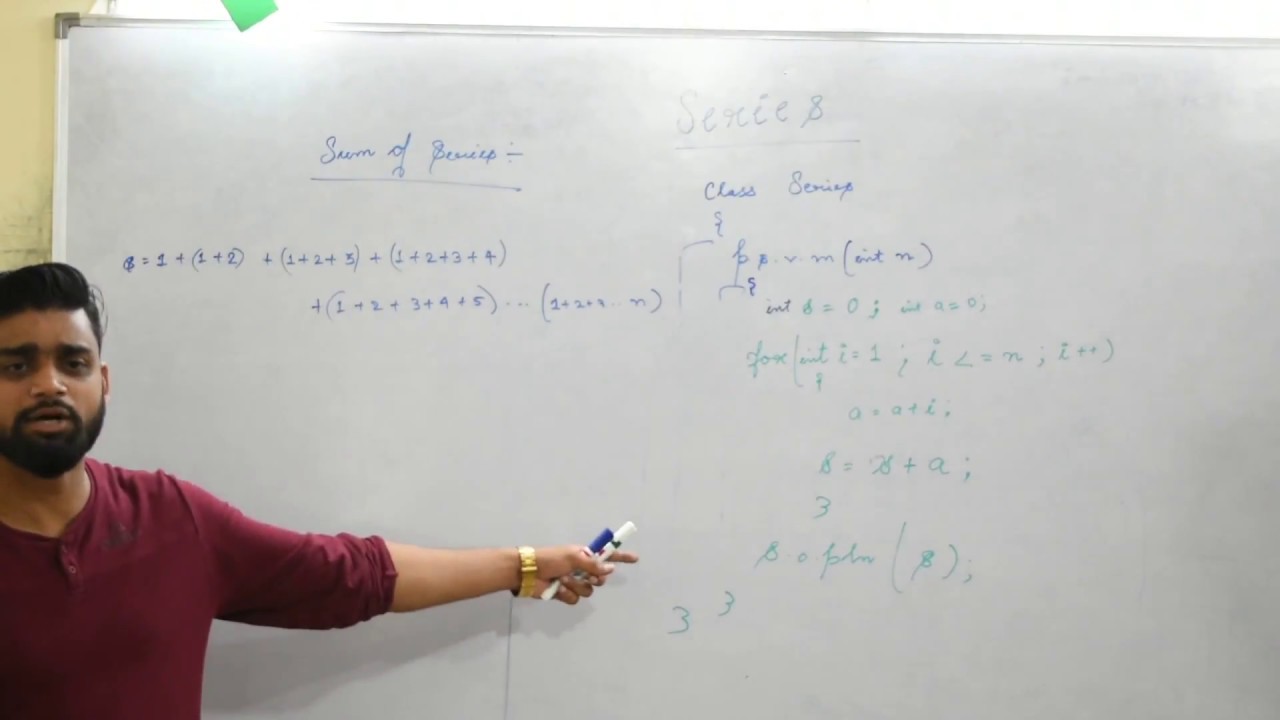 Series
Sum of Series :-
s = 1 + (1+2) + (1+2+3) + (1+2+3+4)
+ (1+2+3+4+5) ... (1+2+3...n)
Class Series
{
p s. v. m (int n)
{
int s = 0 ; int a = 0;
for (int i = 1 ; i <= n ; i++)
{
a = a + i ;
s = s + a ;
}
s. o. pln (s) ;
}
}